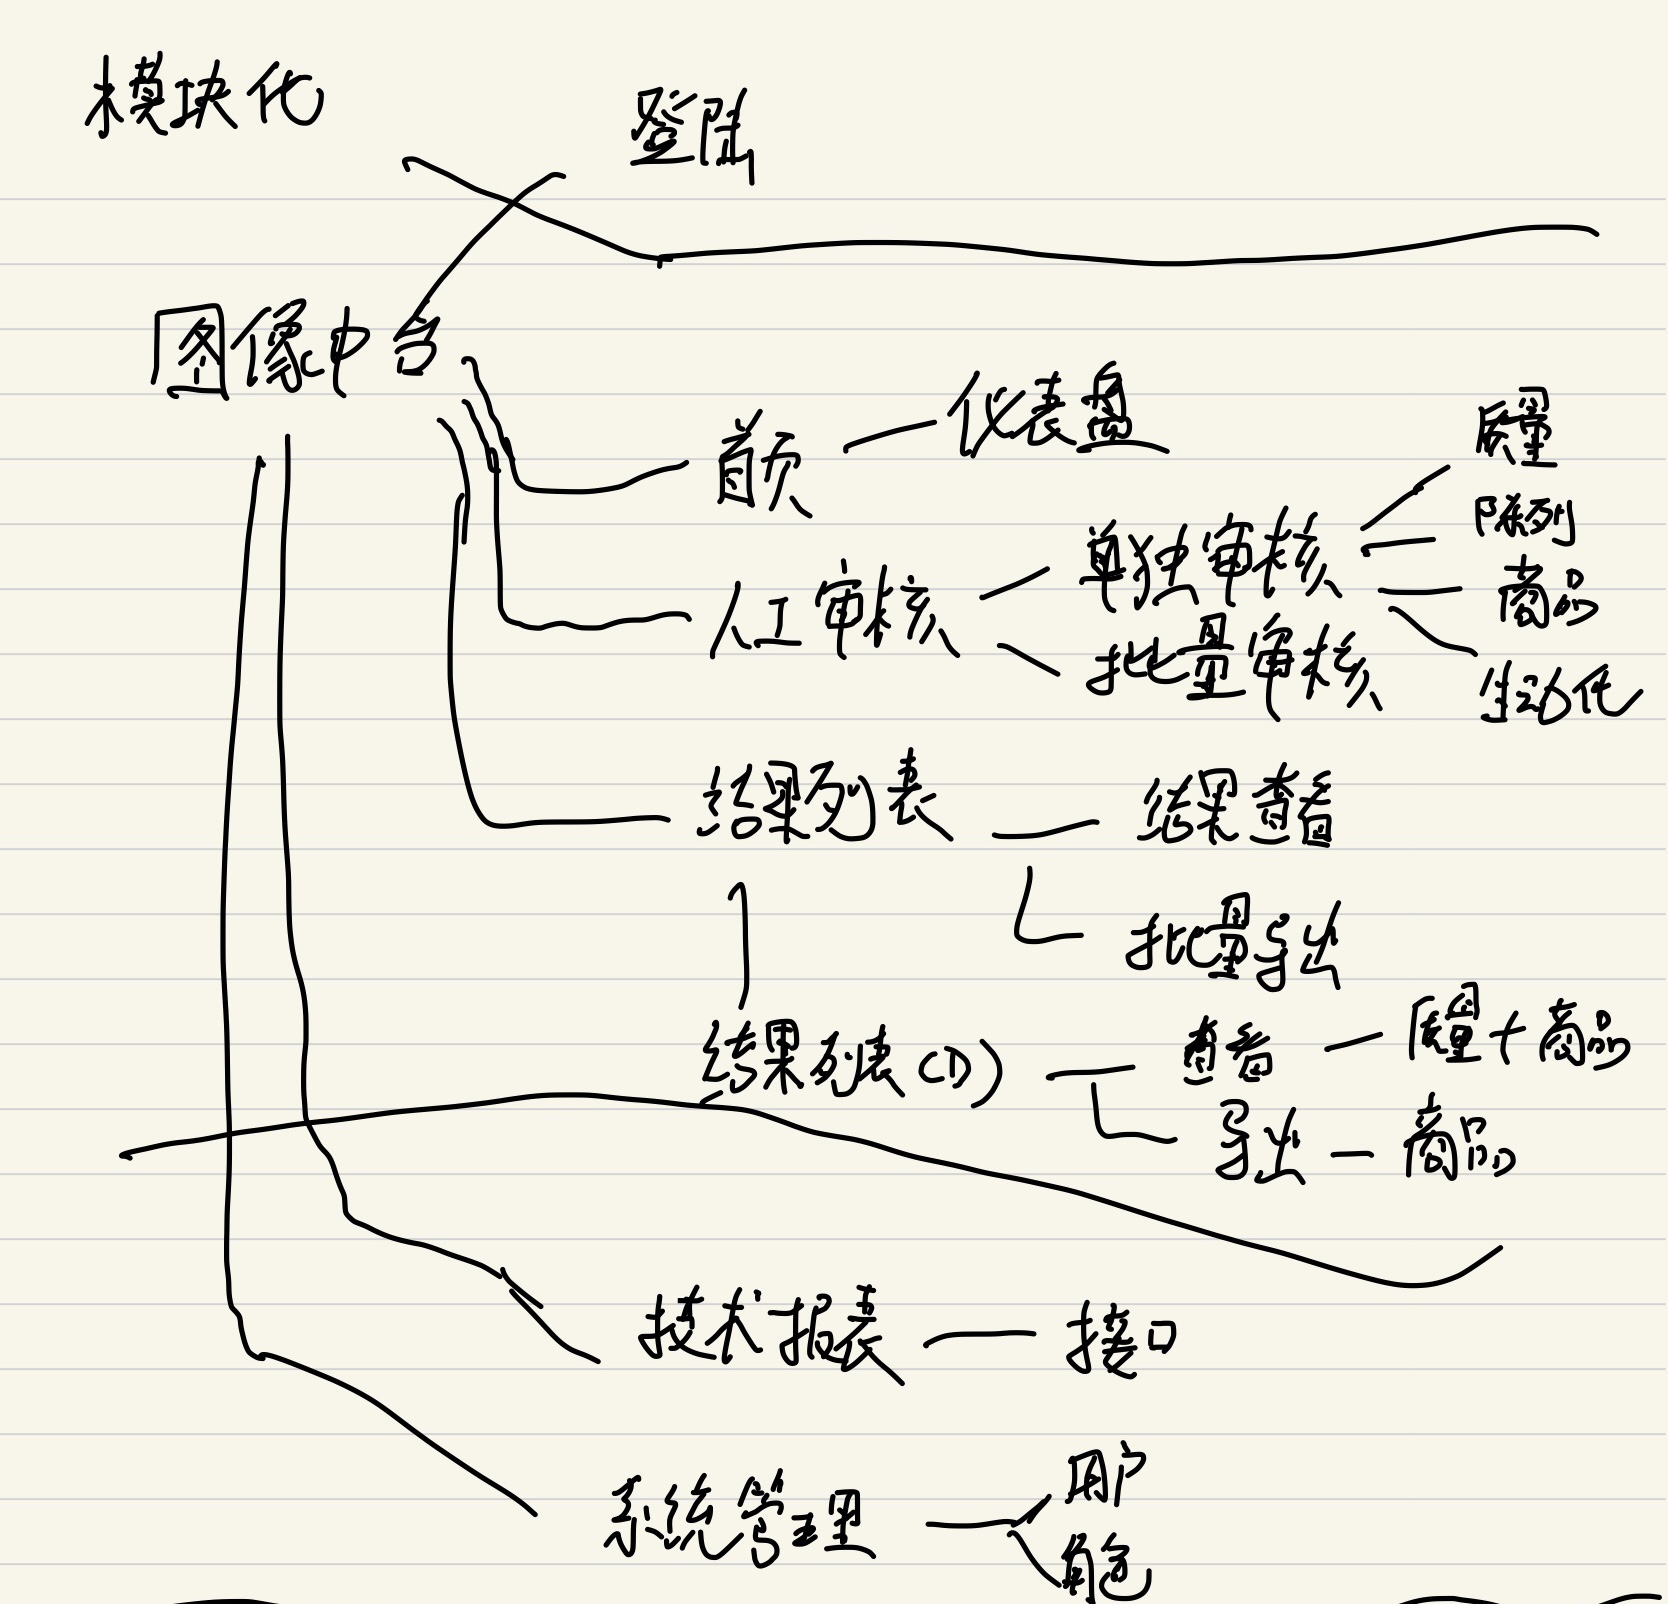 模块化
登陆
图像中台
首页 仪表盘
人工审核 单独审核 质量
陈列
商品
生动化
批量审核
结果列表 结果查看
批量导出
结果列表(D) 查看 质量+商品
导出 商品
技术报表 接口
系统管理 用户
角色